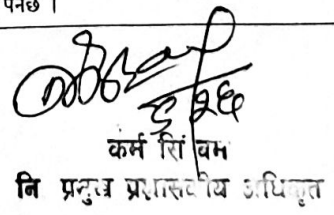 पनछ ।
कर्म सिं वम
नि प्रमुख प्रशासकीय अधिकृत